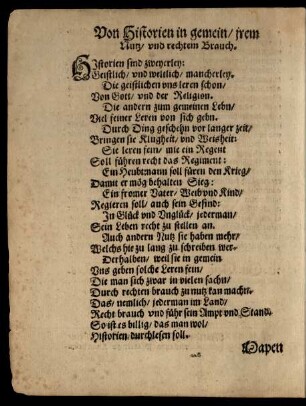 Von Historien in gemein / jrem
Nutz / vnd rechtem Brauch.
HIstorien sind zweyerley:
Geistlich / vnd weltlich / mancherley.
Die geistlichen vns leren schon /
Von Gott / vnd der Religion.
Die andern zum gemeinen Lebn /
Viel feiner Leren von sich gebn.
Durch Ding gschehn vor langer zeit /
Bringen sie Klugheit / vnd Weisheit:
Sie leren fein / wie ein Regent
Soll führen recht das Regiment:
Ein Heubtmann soll füren den Krieg /
Damit er mög behalten Sieg:
Ein fromer Vater / Weib vnd Kind /
Regieren soll / auch sein Gesind:
In Glück vnd Vnglück / jederman /
Sein Leben recht zu stellen an.
Auch andern Nutz sie haben mehr /
Welchs hie zu lang zu schreiben wer.
Derhalben / weil sie in gemein
Vns geben solche Leren fein /
Die man sich zwar in vielen sachn /
Durch rechten brauch zu nutz kan machn.
Das / nemlich / jederman im Land /
Recht brauch vnd führ sein Ampt vnd Stand.
So ist es billig / das man wol /
Historien / durchlesen soll.